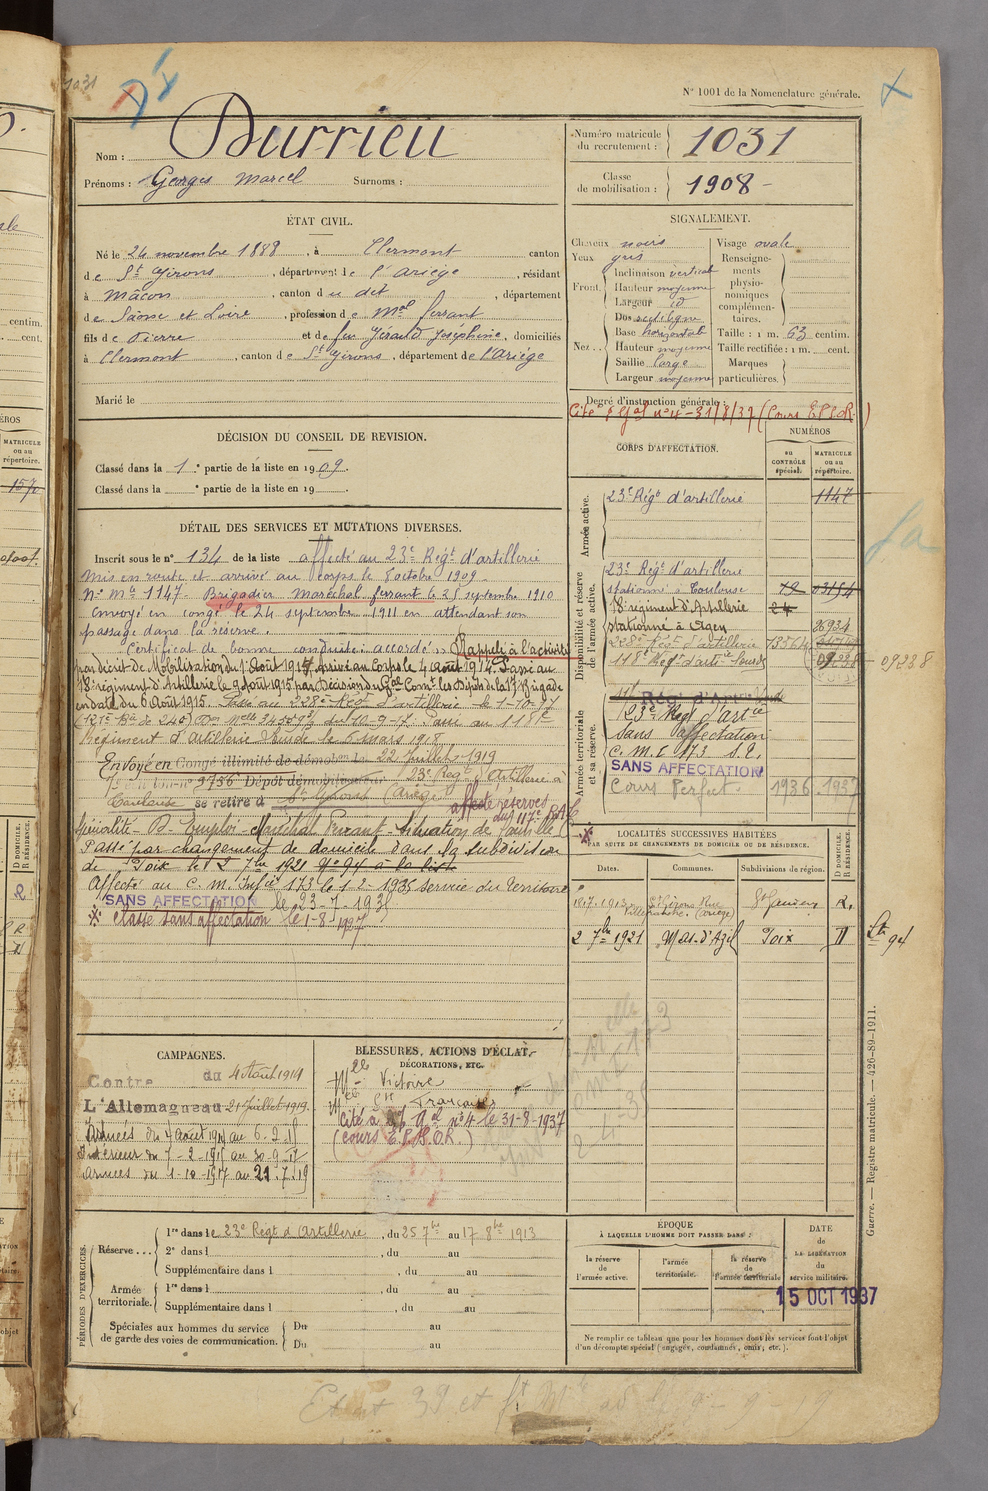 1031
N° 1001 de la Nomenclature générale.
Nom : Durrieu
Prénoms : Georges Marcel Surnoms :
Numéro matricule du recrutement : 1031
Classe de mobilisation : 1908
ÉTAT CIVIL.
Né le 24 novembre 1888, à Clermont canton
de St Girons, département de l'Ariège, résidant
à Mâcon, canton du dit, département
de Saône et Loire, profession de Mal ferrant
fils de Pierre et de feu Gérauld Joséphine, domiciliés
à Clermont, canton de St Girons, département de l'Ariège
Marié le
SIGNALEMENT.
Cheveux noirs
Yeux gris
Front. Inclinaison vertical
Hauteur moyenne
Largeur id
Nez.. Dos rectiligne
Base horizontale
Hauteur moyenne
Saillie large
Largeur moyenne
Visage ovale
Renseignements physionomiques complémentaires.
Taille : 1 m. 63 centim.
Taille rectifiée : 1 m. cent.
Marques particulières.
Degré d'instruction générale :
Cité à l'gal n° 4 - 31/8/37 (Cours E.P.S.O.R.)
DÉCISION DU CONSEIL DE REVISION.
Classé dans la 1e partie de la liste en 1909.
Classé dans la e partie de la liste en 19
DÉTAIL DES SERVICES ET MUTATIONS DIVERSES.
Inscrit sous le n° 134 de la liste affecté au 23e Régt d'artillerie
Mis en route et arrivé au corps le 8 octobre 1909.
N° Mle 1147. Brigadier Maréchal ferrant le 25 septembre 1910
Envoyé en congé le 24 septembre 1911 en attendant son
passage dans la réserve.
Certificat de bonne conduite : accordé. Rappelé à l'activité
par décret de Mobilisation du 1er Août 1914 arrivé au Corps le 4 août 1914. Passé au
18e régiment d'Artillerie le 9 Août 1915 par Décision du Gal Comt les Dépôts de la 17e Brigade
en date du 6 Août 1915. Passé au 228e Régt d'artillerie le 1-10-17
(121e Bie de 240) Don Melle 34559 du 10-9-17. Passé au 118e
Régiment d'Artillerie lourde le 5 mars 1918
Envoyé en Congé illimité de démobon le 22 Juillet 1919
n° 9756 Dépôt démobilisateur 23e Régt d'Artillerie à
Toulouse se retire à St Girons (Ariège)
affecté réserves du 117e RAL
Spécialité - B - Emploi - Maréchal Ferrant - Situation de famille
Passé par changement de domicile dans la subdivision
de Foix le 2 7bre 1921 N° 94 à la liste
Affecté au C. M. Infie 173 le 1-2-1935 service du territoire
SANS AFFECTATION le 23-7-1935
Classé sans affectation le 1-8-1937
CORPS D'AFFECTATION.
NUMÉROS
au CONTRÔLE spécial.
MATRICULE ou au répertoire.
Armée active.
23e Régt d'artillerie 1147
Disponibilité et réserve de l'armée active.
23e Régt d'artillerie
stationné à Toulouse
18e régiment d'Artillerie 24
stationné à Agen
228e Régt d'artillerie
118e Régt d'artie lourde 09238 - 09238
Armée territoriale et sa réserve.
23e Régt d'artie
sans affectation
C. M. I 173 S.T.
SANS AFFECTATION
Cours Perfect. 1936. 1937
LOCALITÉS SUCCESSIVES HABITÉES
PAR SUITE DE CHANGEMENTS DE DOMICILE OU DE RÉSIDENCE.
Dates. Communes. Subdivisions de région. D DOMICILE. R RÉSIDENCE.
18.7.1913 St Girons Rue Villefranche. (Ariège) St Gaudens R.
2 7bre 1921 Mas-d'Azil Foix D
CAMPAGNES.
Contre du 4 Août 1914
L'Allemagne au 21 juillet 1919.
Armées du 4 Août 1914 au 6.2.15
Intérieur du 7-2-1915 au 30-9-17
Armées du 1-10-1917 au 21.7.19
BLESSURES, ACTIONS D'ÉCLAT,
DÉCORATIONS, ETC.
Mlle Victoire
Française
Cité à l'gal n° 4 le 31-8-1937
(Cours E.P.S.O.R.)
PÉRIODES D'EXERCICES.
Réserve... 1re dans le 23e Régt d'Artillerie, du 25 7bre au 17 8bre 1913
2e dans l , du au
Supplémentaire dans l , du au
Armée territoriale. 1re dans l , du au
Supplémentaire dans l , du au
Spéciales aux hommes du service de garde des voies de communication. Du au
Du au
ÉPOQUE
À LAQUELLE L'HOMME DOIT PASSER DANS :
la réserve de l'armée active.
l'armée territoriale.
la réserve de l'armée territoriale
DATE DE LA LIBÉRATION du service militaire.
15 OCT 1937
Ne remplir ce tableau que pour les hommes dont les services font l'objet
d'un décompte spécial (engagés, condamnés, omis, etc.).
Guerre. — Registre matricule. — 426-89-1911.